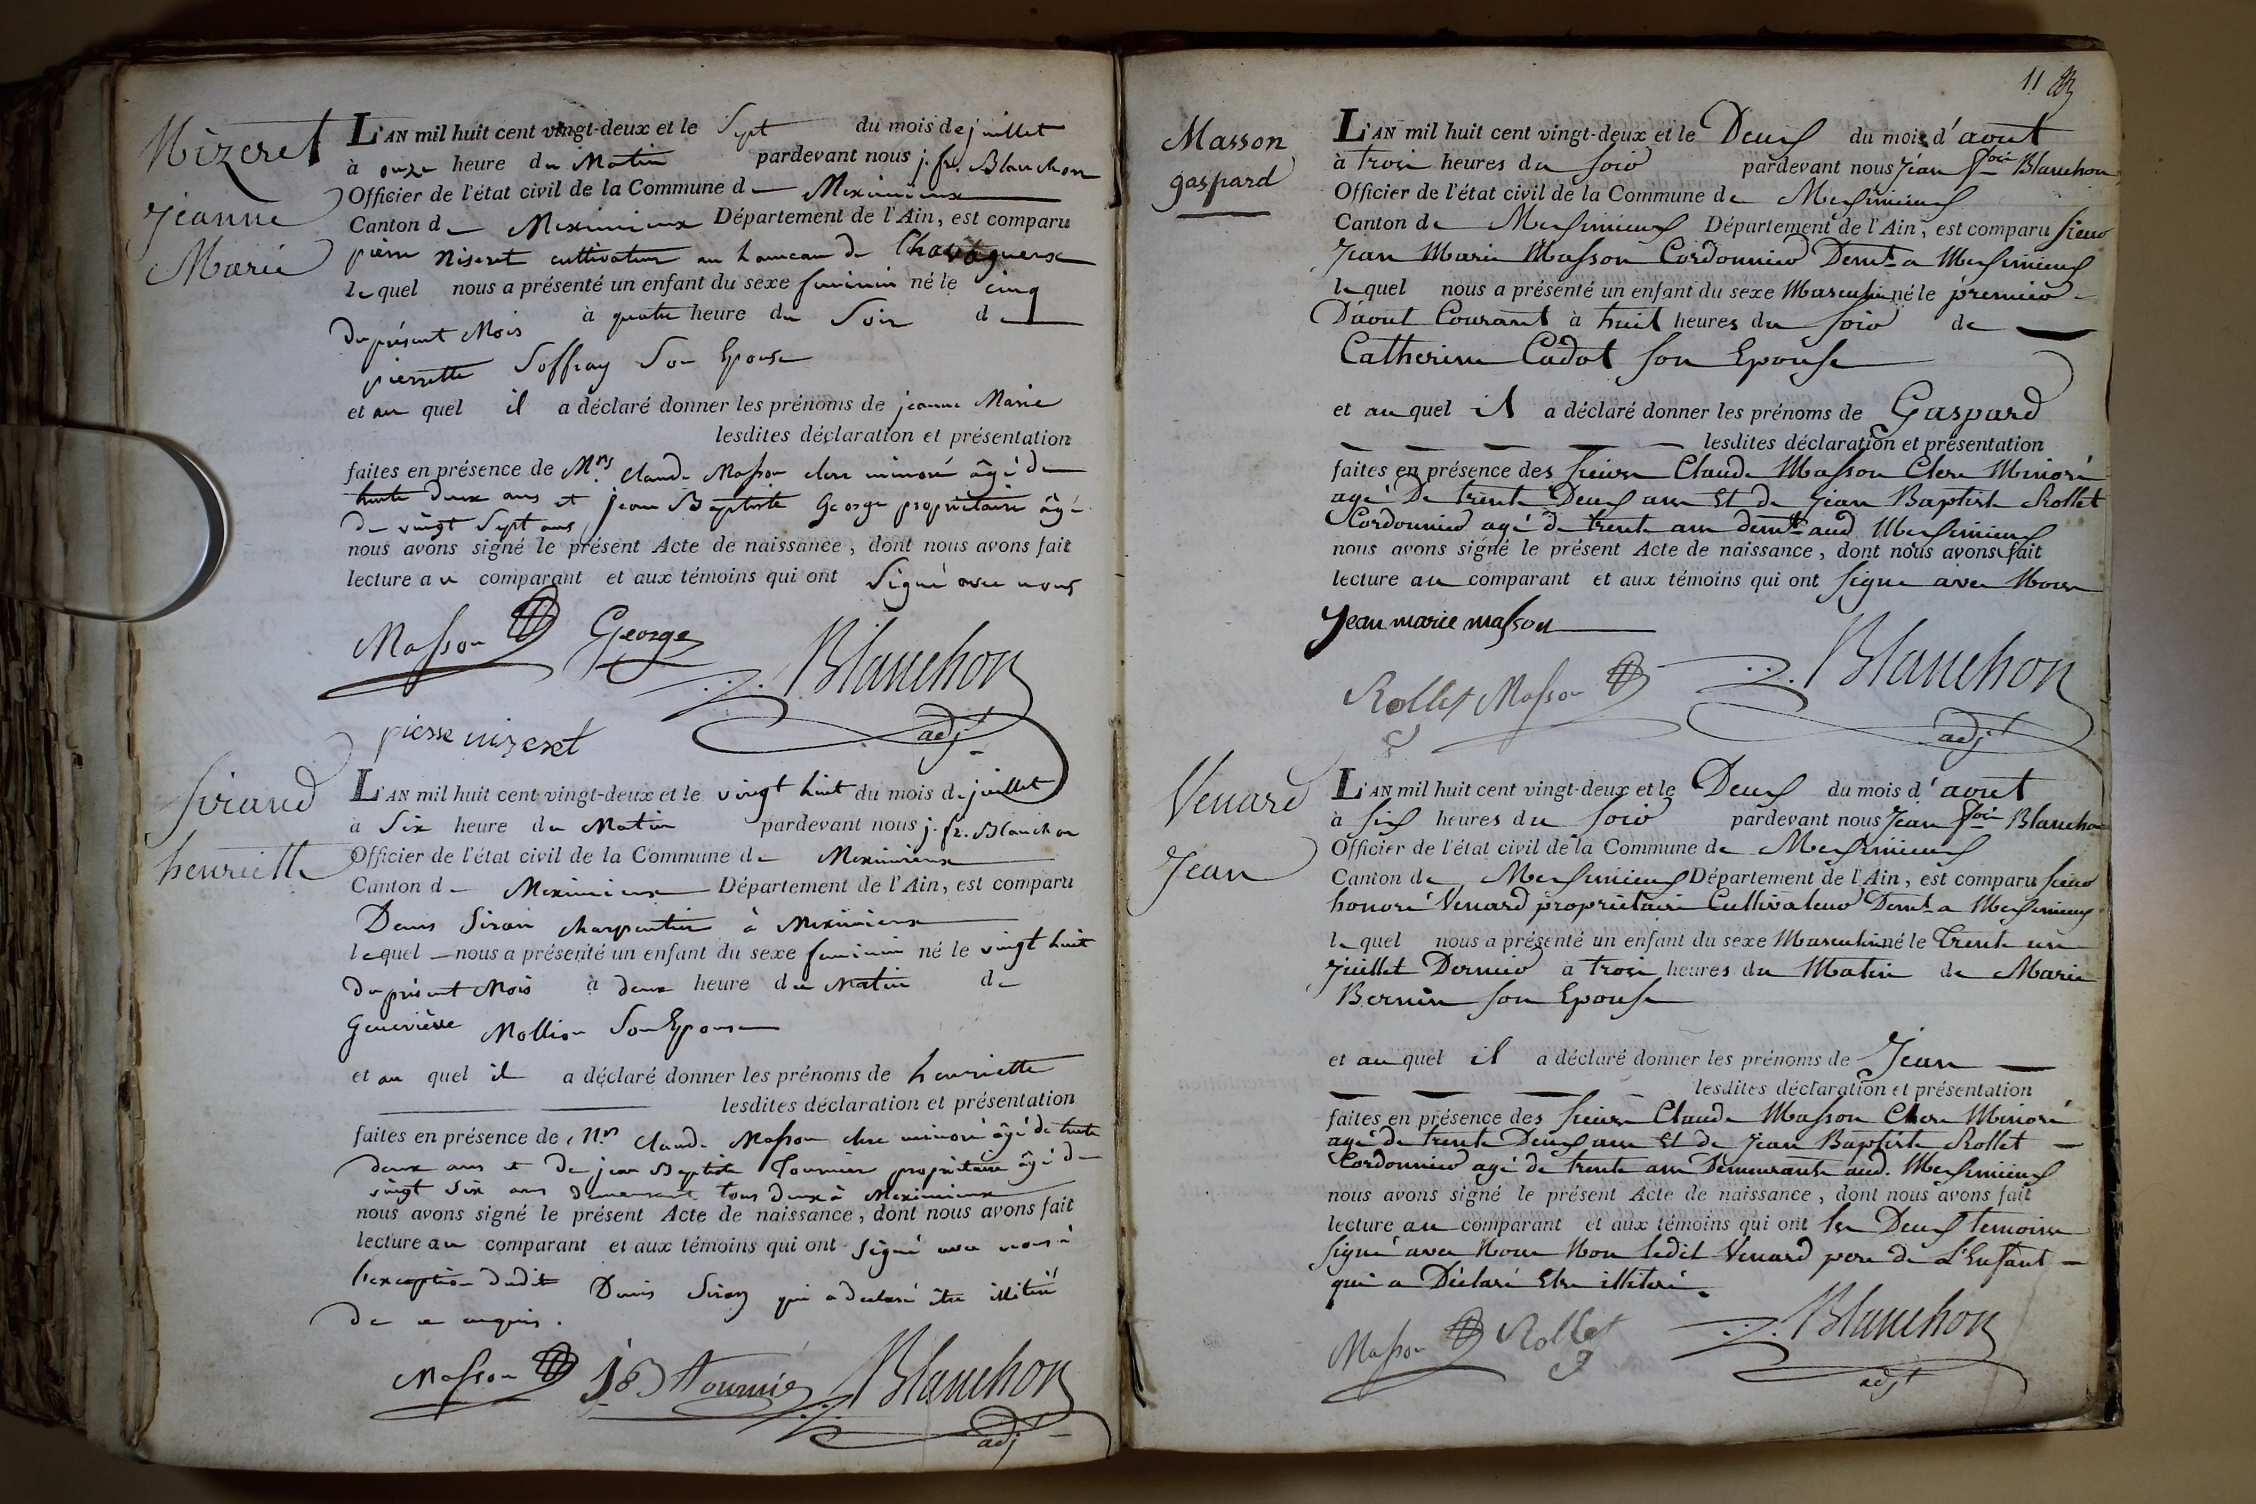 Mizeret
Jeanne
Marie
L'AN mil huit cent vingt-deux et le Sept du mois de juillet
à onze heure du Matin pardevant nous j. fs. Blanchon
Officier de l'état civil de la Commune de Meximieux
Canton de Meximieux Département de l'Ain, est comparu
pierre Niseret cultivateur au hameau de Chavagneux
lequel nous a présenté un enfant du sexe feminin né le cinq
du présent Mois à quatre heure du Soir de
pierrette Soffray Son Epouse
et au quel il a déclaré donner les prénoms de jeanne Marie
lesdites déclaration et présentation
faites en présence de Mrs. Claude Masson clerc minoré âgé de
trente deux ans et jean Baptiste George propriétaire âgé
de vingt Sept ans,
nous avons signé le présent Acte de naissance, dont nous avons fait
lecture au comparant et aux témoins qui ont Signé avec nous
Masson George Blanchon
adj
pierre mizeret
Sirand
henriette
L'AN mil huit cent vingt-deux et le vingt huit du mois de juillet
à Six heure du Matin pardevant nous j. fs. Blanchon
Officier de l'état civil de la Commune de Meximieux
Canton de Meximieux Département de l'Ain, est comparu
Denis Siran charpentier à Meximieux
lequel nous a présenté un enfant du sexe feminin né le vingt huit
du présent Mois à deux heure du Matin de
Geneviève Mollion Son Epouse
et au quel il a déclaré donner les prénoms de henriette
lesdites déclaration et présentation
faites en présence de Mrs Claude Masson clerc minoré âgé de trente
deux ans et de jean Baptiste Tournier propriétaire âgé de
vingt Six ans demeurant tous deux à Meximieux
nous avons signé le présent Acte de naissance, dont nous avons fait
lecture au comparant et aux témoins qui ont Signé avec nous à
l'exception dudit Denis Siran qui a declaré être illitéré
de ce enquis.
Masson JB Tournier Blanchon
adj
11
Masson
gaspard
L'AN mil huit cent vingt-deux et le Deux du mois d'aout
à trois heures du soir pardevant nous Jean fçois Blanchon
Officier de l'état civil de la Commune de Meximieux
Canton de Meximieux Département de l'Ain, est comparu sieur
Jean Marie Masson Cordonnier Demt a Meximieux
lequel nous a présenté un enfant du sexe Masculin né le premier
D'aout Courant à huit heures du soir de
Catherine Cadot son Epouse
et au quel il a déclaré donner les prénoms de Gaspard
lesdites déclaration et présentation
faites en présence des sieurs Claude Masson Clerc Minoré
agé De trente Deux ans Et de Jean Baptiste Rollet
Cordonnier agé de trente ans demt aud. Meximieux
nous avons signé le présent Acte de naissance, dont nous avons fait
lecture au comparant et aux témoins qui ont signé avec Nous
Jean marie masson
Rollet Masson Blanchon
adj
Venard
Jean
L'AN mil huit cent vingt-deux et le Deux du mois d'aout
à six heures du soir pardevant nous Jean fçois Blanchon
Officier de l'état civil de la Commune de Meximieux
Canton de Meximieux Département de l'Ain, est comparu sieur
honoré Venard propriétaire Cultivateur Demt a Meximieux
lequel nous a présenté un enfant du sexe Masculin né le Trente un
Juillet Dernier à trois heures du Matin de Marie
Bernin son Epouse
et au quel il a déclaré donner les prénoms de Jean
lesdites déclaration et présentation
faites en présence des sieurs Claude Masson Clerc Minoré
agé de trente Deux ans Et de Jean Baptiste Rollet
Cordonnier agé de trente ans Demeurants aud. Meximieux
nous avons signé le présent Acte de naissance, dont nous avons fait
lecture au comparant et aux témoins qui ont les Deux temoins
signé avec Nous Non ledit Venard pere de L'Enfant
qui a Déclaré Etre illitéré.
Masson Rollet Blanchon
adjt